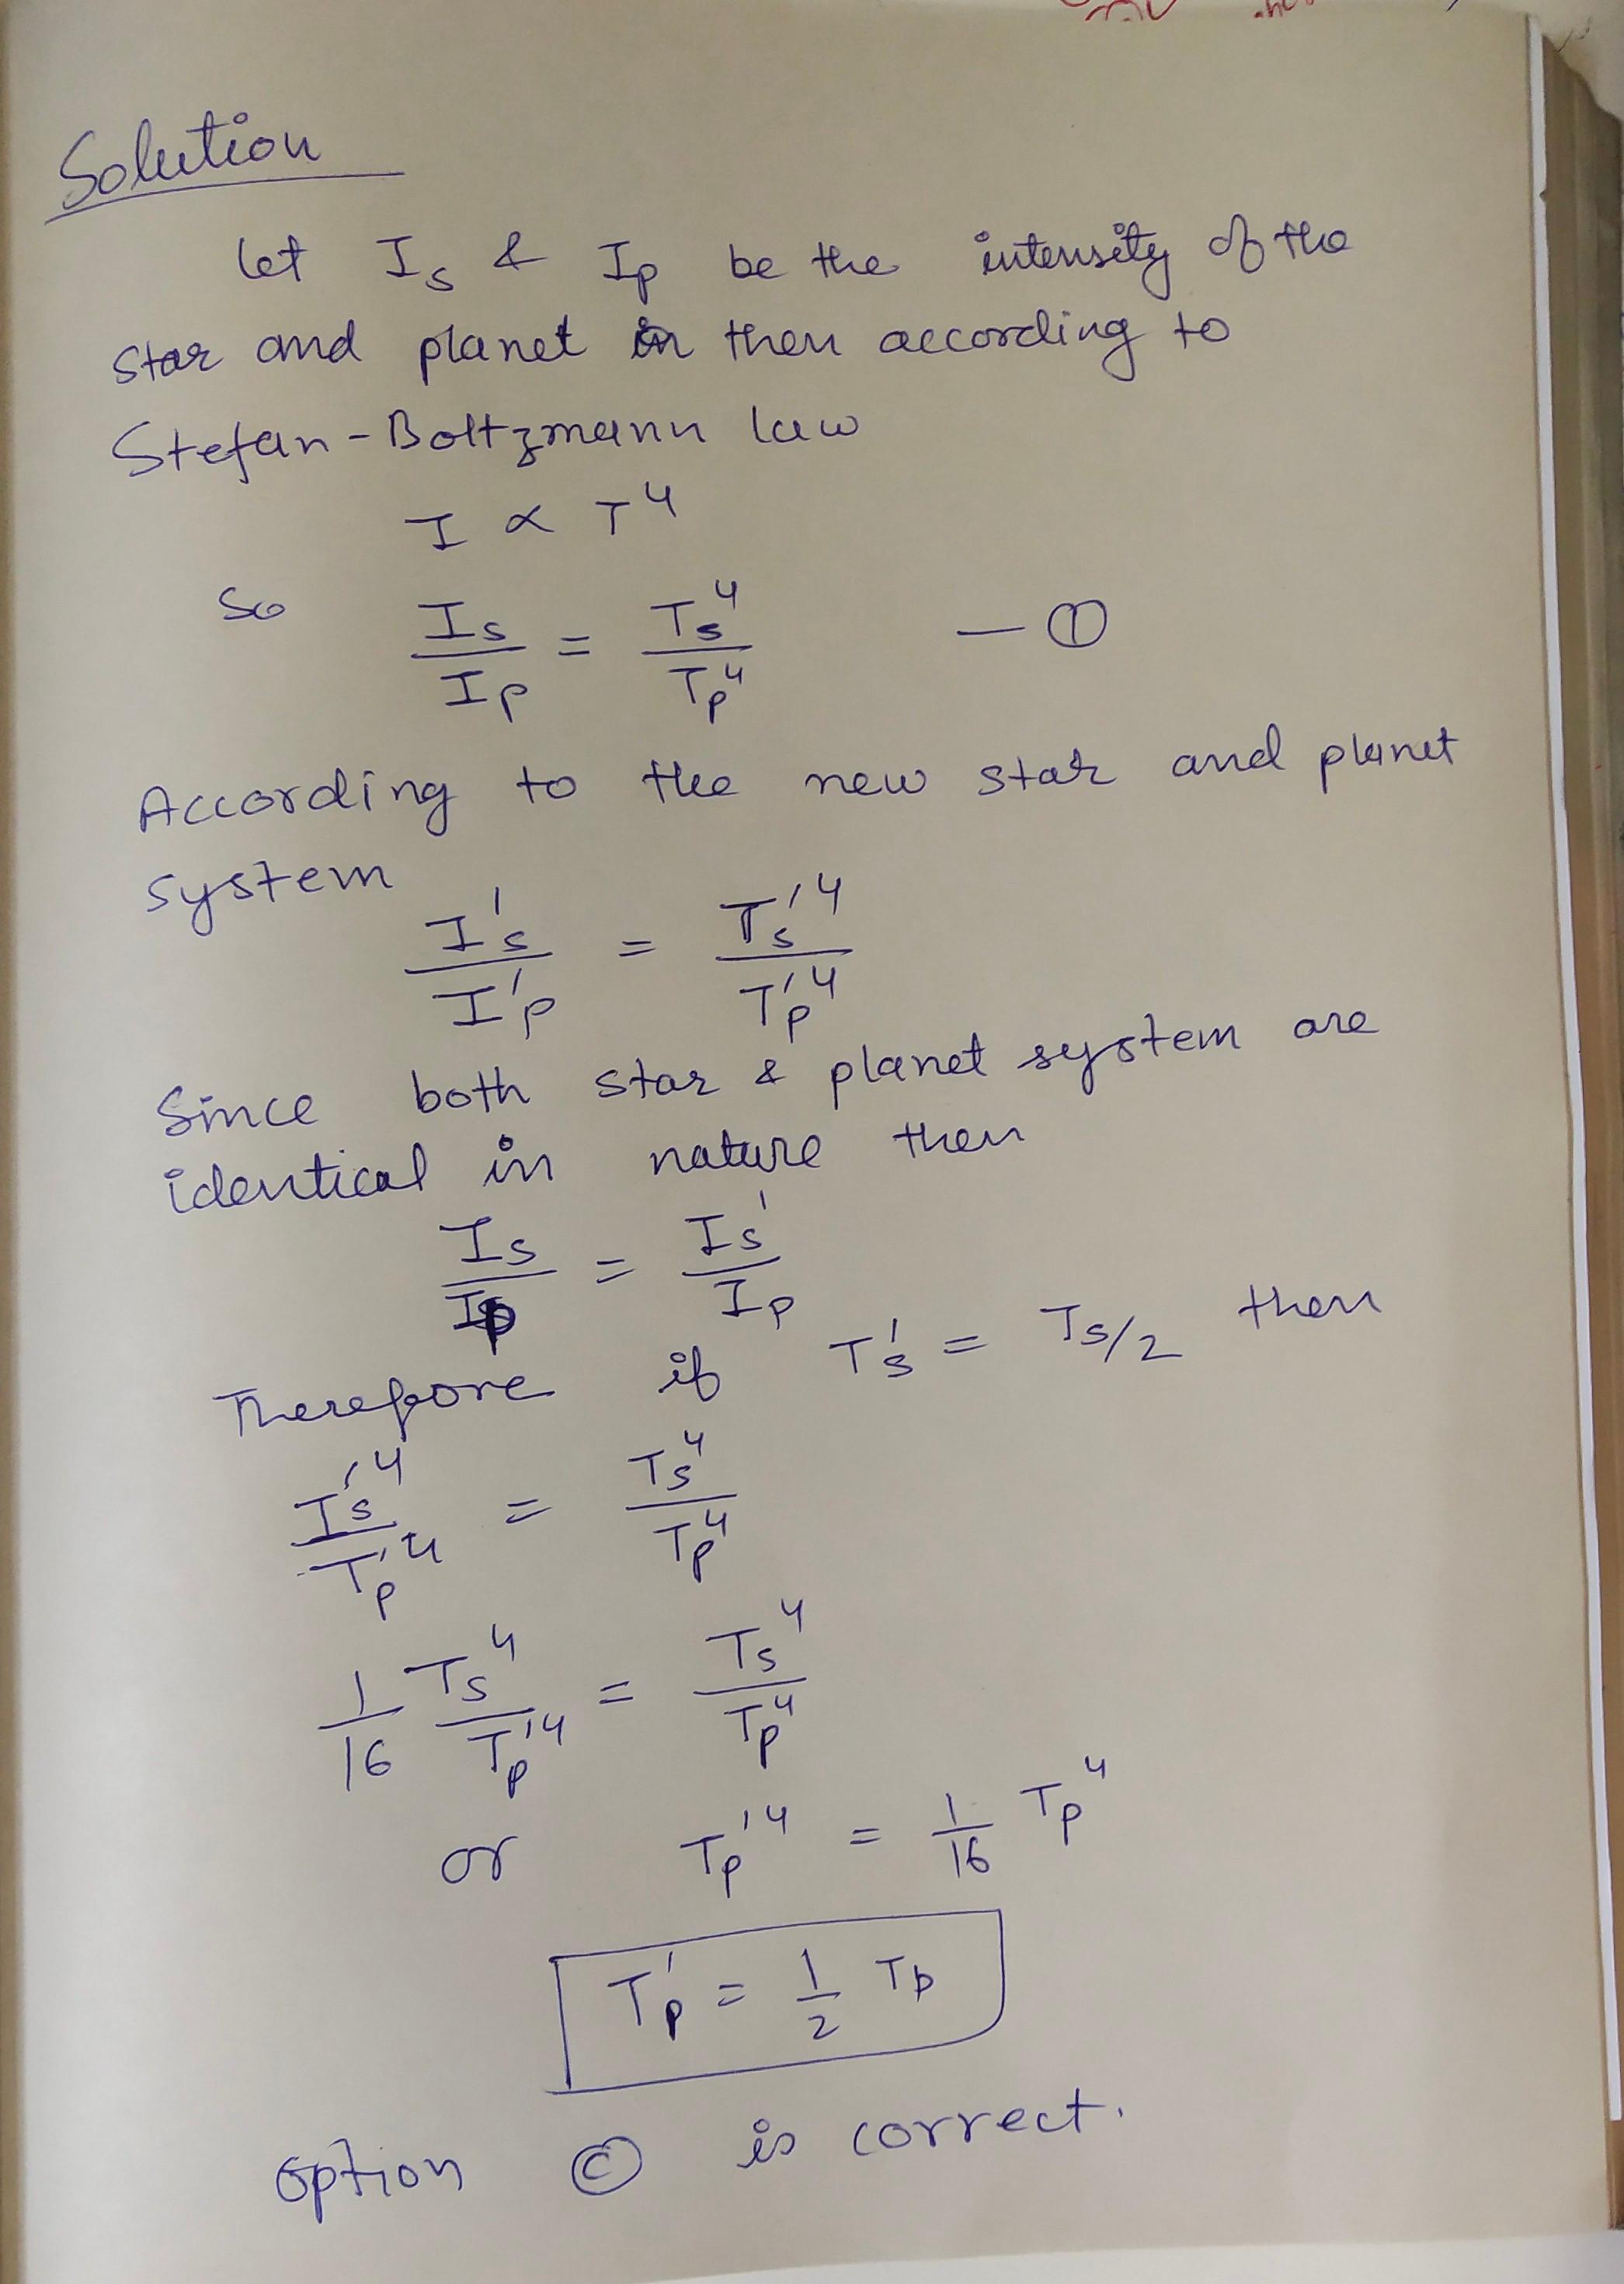 Solution
Let Is & Ip be the intensity of the
star and planet in then according to
Stefan-Boltzmann law
I ∝ T⁴
So Is/Ip = Ts⁴/Tp⁴ — ①
According to the new star and planet
system
I's/I'p = Ts'⁴/T'p⁴
Since both star & planet system are
identical in nature then
Is/Ip = Is'/Ip
Therefore if T's = Ts/2 then
I's⁴/T'p⁴ = Ts⁴/Tp⁴
1/16 Ts⁴/Tp'⁴ = Ts⁴/Tp⁴
or Tp'⁴ = 1/16 Tp⁴
T'p = 1/2 Tp
Option © is correct.